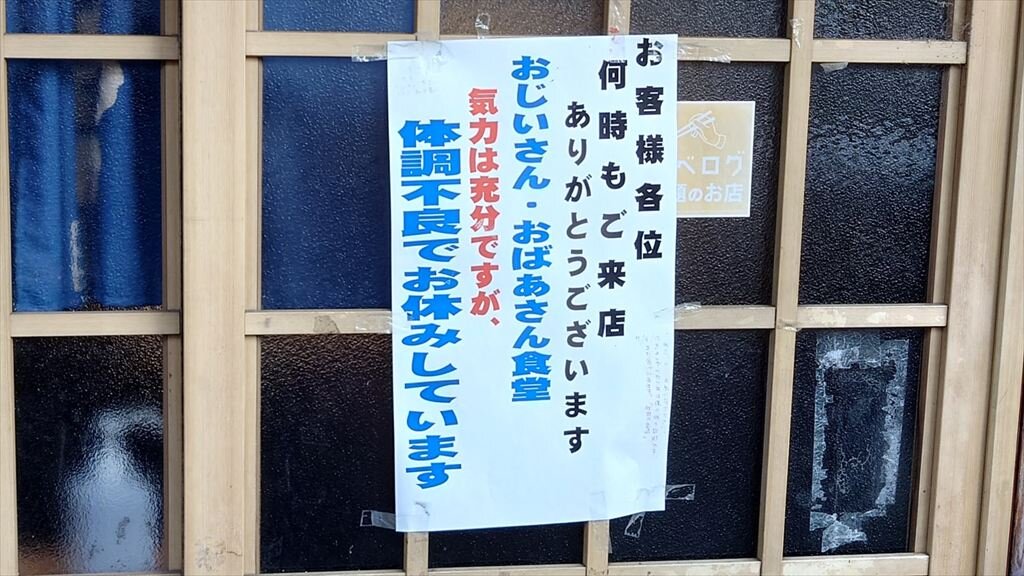 お客様各位
何時もご来店
ありがとうございます
おじいさん・おばあさん食堂
気力は充分ですが、
体調不良でお休みしています
ベログ
題のお店